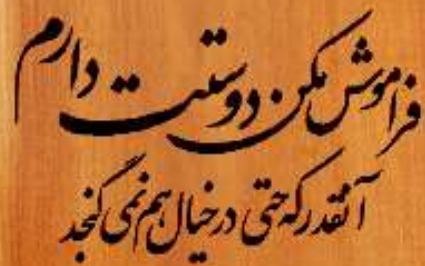 فراموش مکن دوستت دارم
آنقدر که حتی در خیال هم نمی گنجد